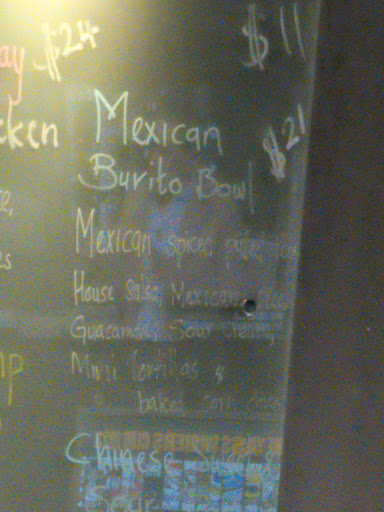 ay $24
$11
cken
Mexican
$21
Burito Bowl
Mexican spiced
es
House salsa, Mexican
Guacamole, Sour cream,
Mini tortillas &
baked corn
Chinese Sweet &
Sour